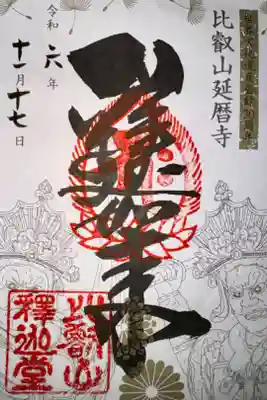 比叡山延暦寺
釋迦如来
令和六年
十一月十七日
比叡山
釋迦堂